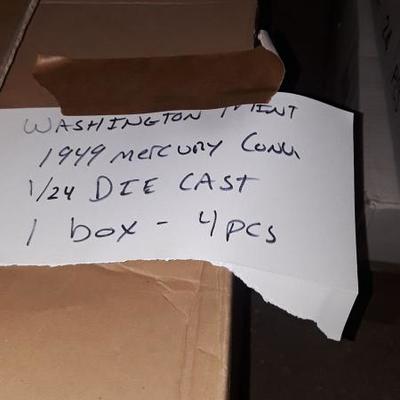 WASHINGTON MINT
1949 MERCURY CONV
1/24 DIE CAST
1 box - 4 pcs